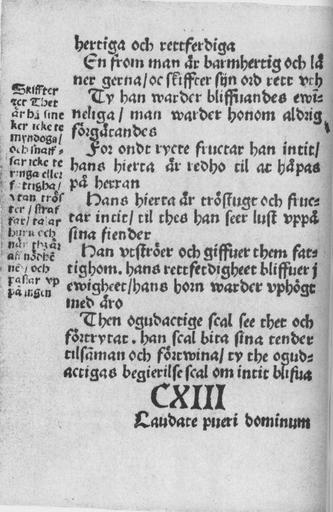 hertiga och rettferdiga
En from man är barmhertig och lå
ner gerna/oc skiffter syn ord rett vth
Ty han warder bliffuandes ewin
neliga/ man warder honom aldrig
förgätandes
For ondt rycte fructar han intit/
hans hierta är redho til at håpas
på herran
Hans hierta är tröstugt och fruc-
tar intit/ til thes han seer lust vppå
sina fiender
Han vtströer och giffuer them fat-
tighom. hans rettferdigheet bliffuer j
ewigheet/hans horn warder vphögt
med äro
Then ogudactige scal see thet och
förtrytat. han scal bita sina tender
tilsäman och förtwina/ ty the ogud-
actigas begierilse scal om intit blifua
CXIII
Laudate pueri dominum
Skiffter
är hå sine
ker icke te
myndoga/
och snaff-
sar icke te
ringa eller
fatigha/
vtan trös
ter/straf
far/talar
huru och
när thz är
aff nödhē
nē/och
passar vp
på ingen